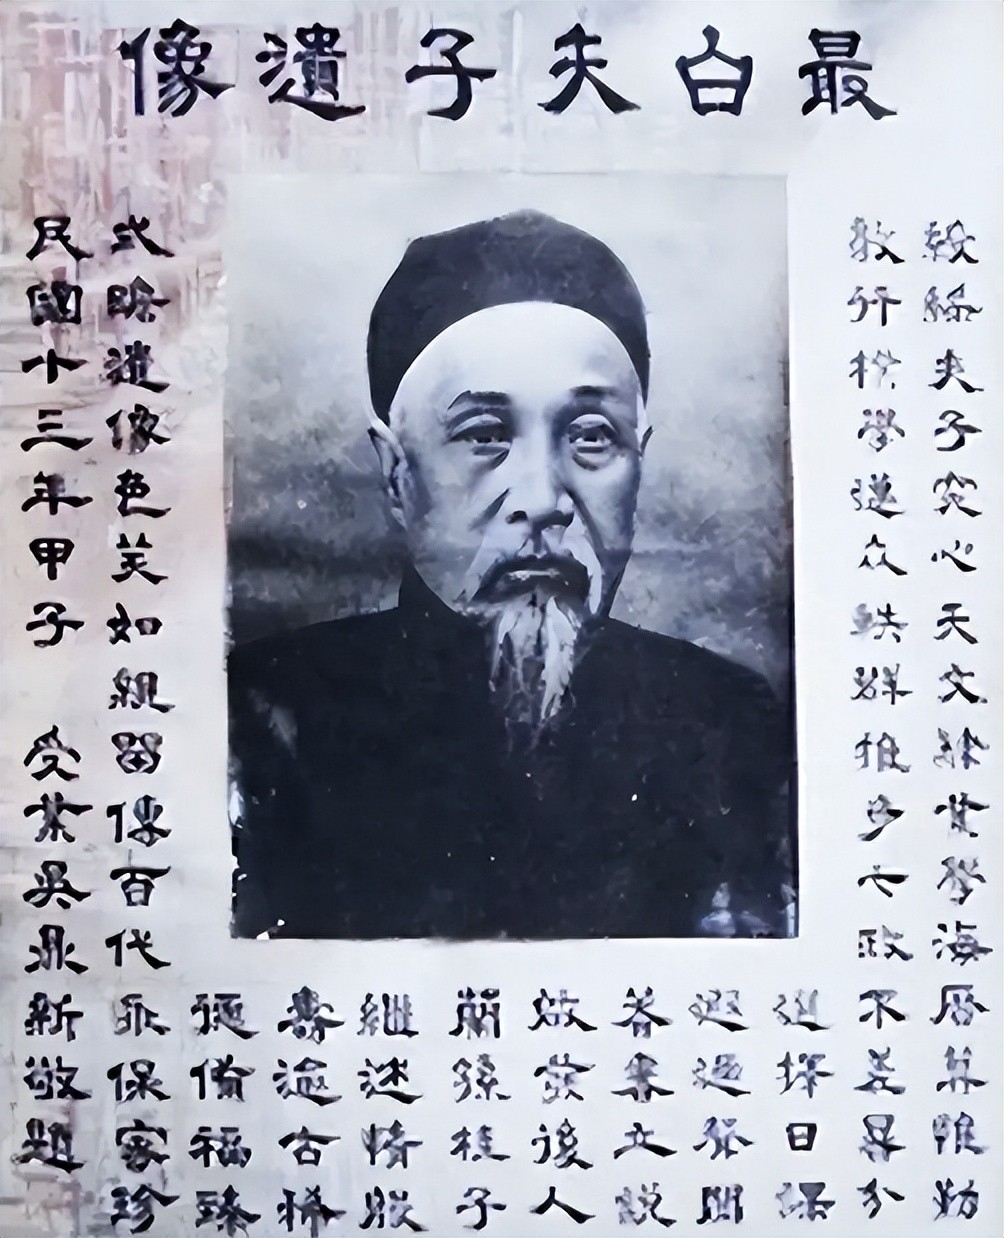 最白夫子遺像
夫子究心天文貫學海曆算惟妙
敦行學邁众軼群推步七政不差晷分
選擇日課
遐邇聞
著書立說
啟發後人
蘭孫桂子
繼述情殷
壽逾古稀
德備福臻
式瞻遺像色笑如親留傳百代永保家珍
民國十三年甲子 受業吳鼎新敬題